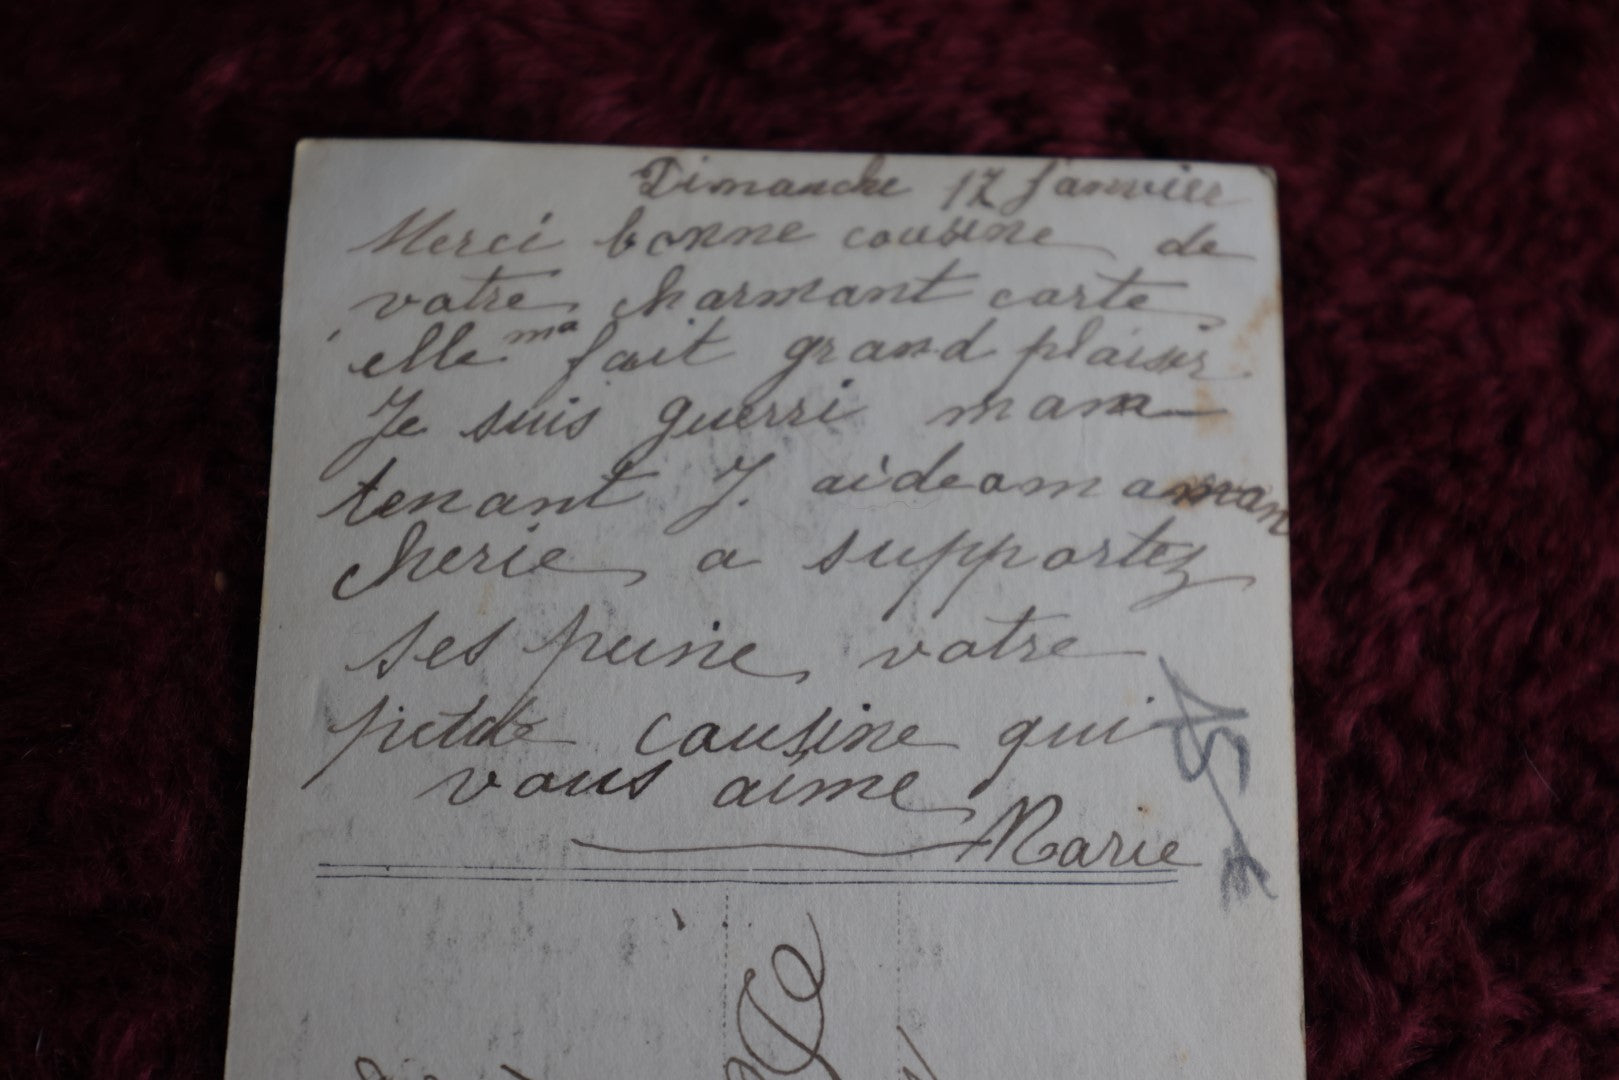 Dimanche 17 Janvier
Merci bonne cousine de
votre charmant carte
elle ma fait grand plaisir
Je suis guerri mam
tenant J. aide a maman
cherie a supportez
ses peine votre
petite cousine qui
vous aime
Marie